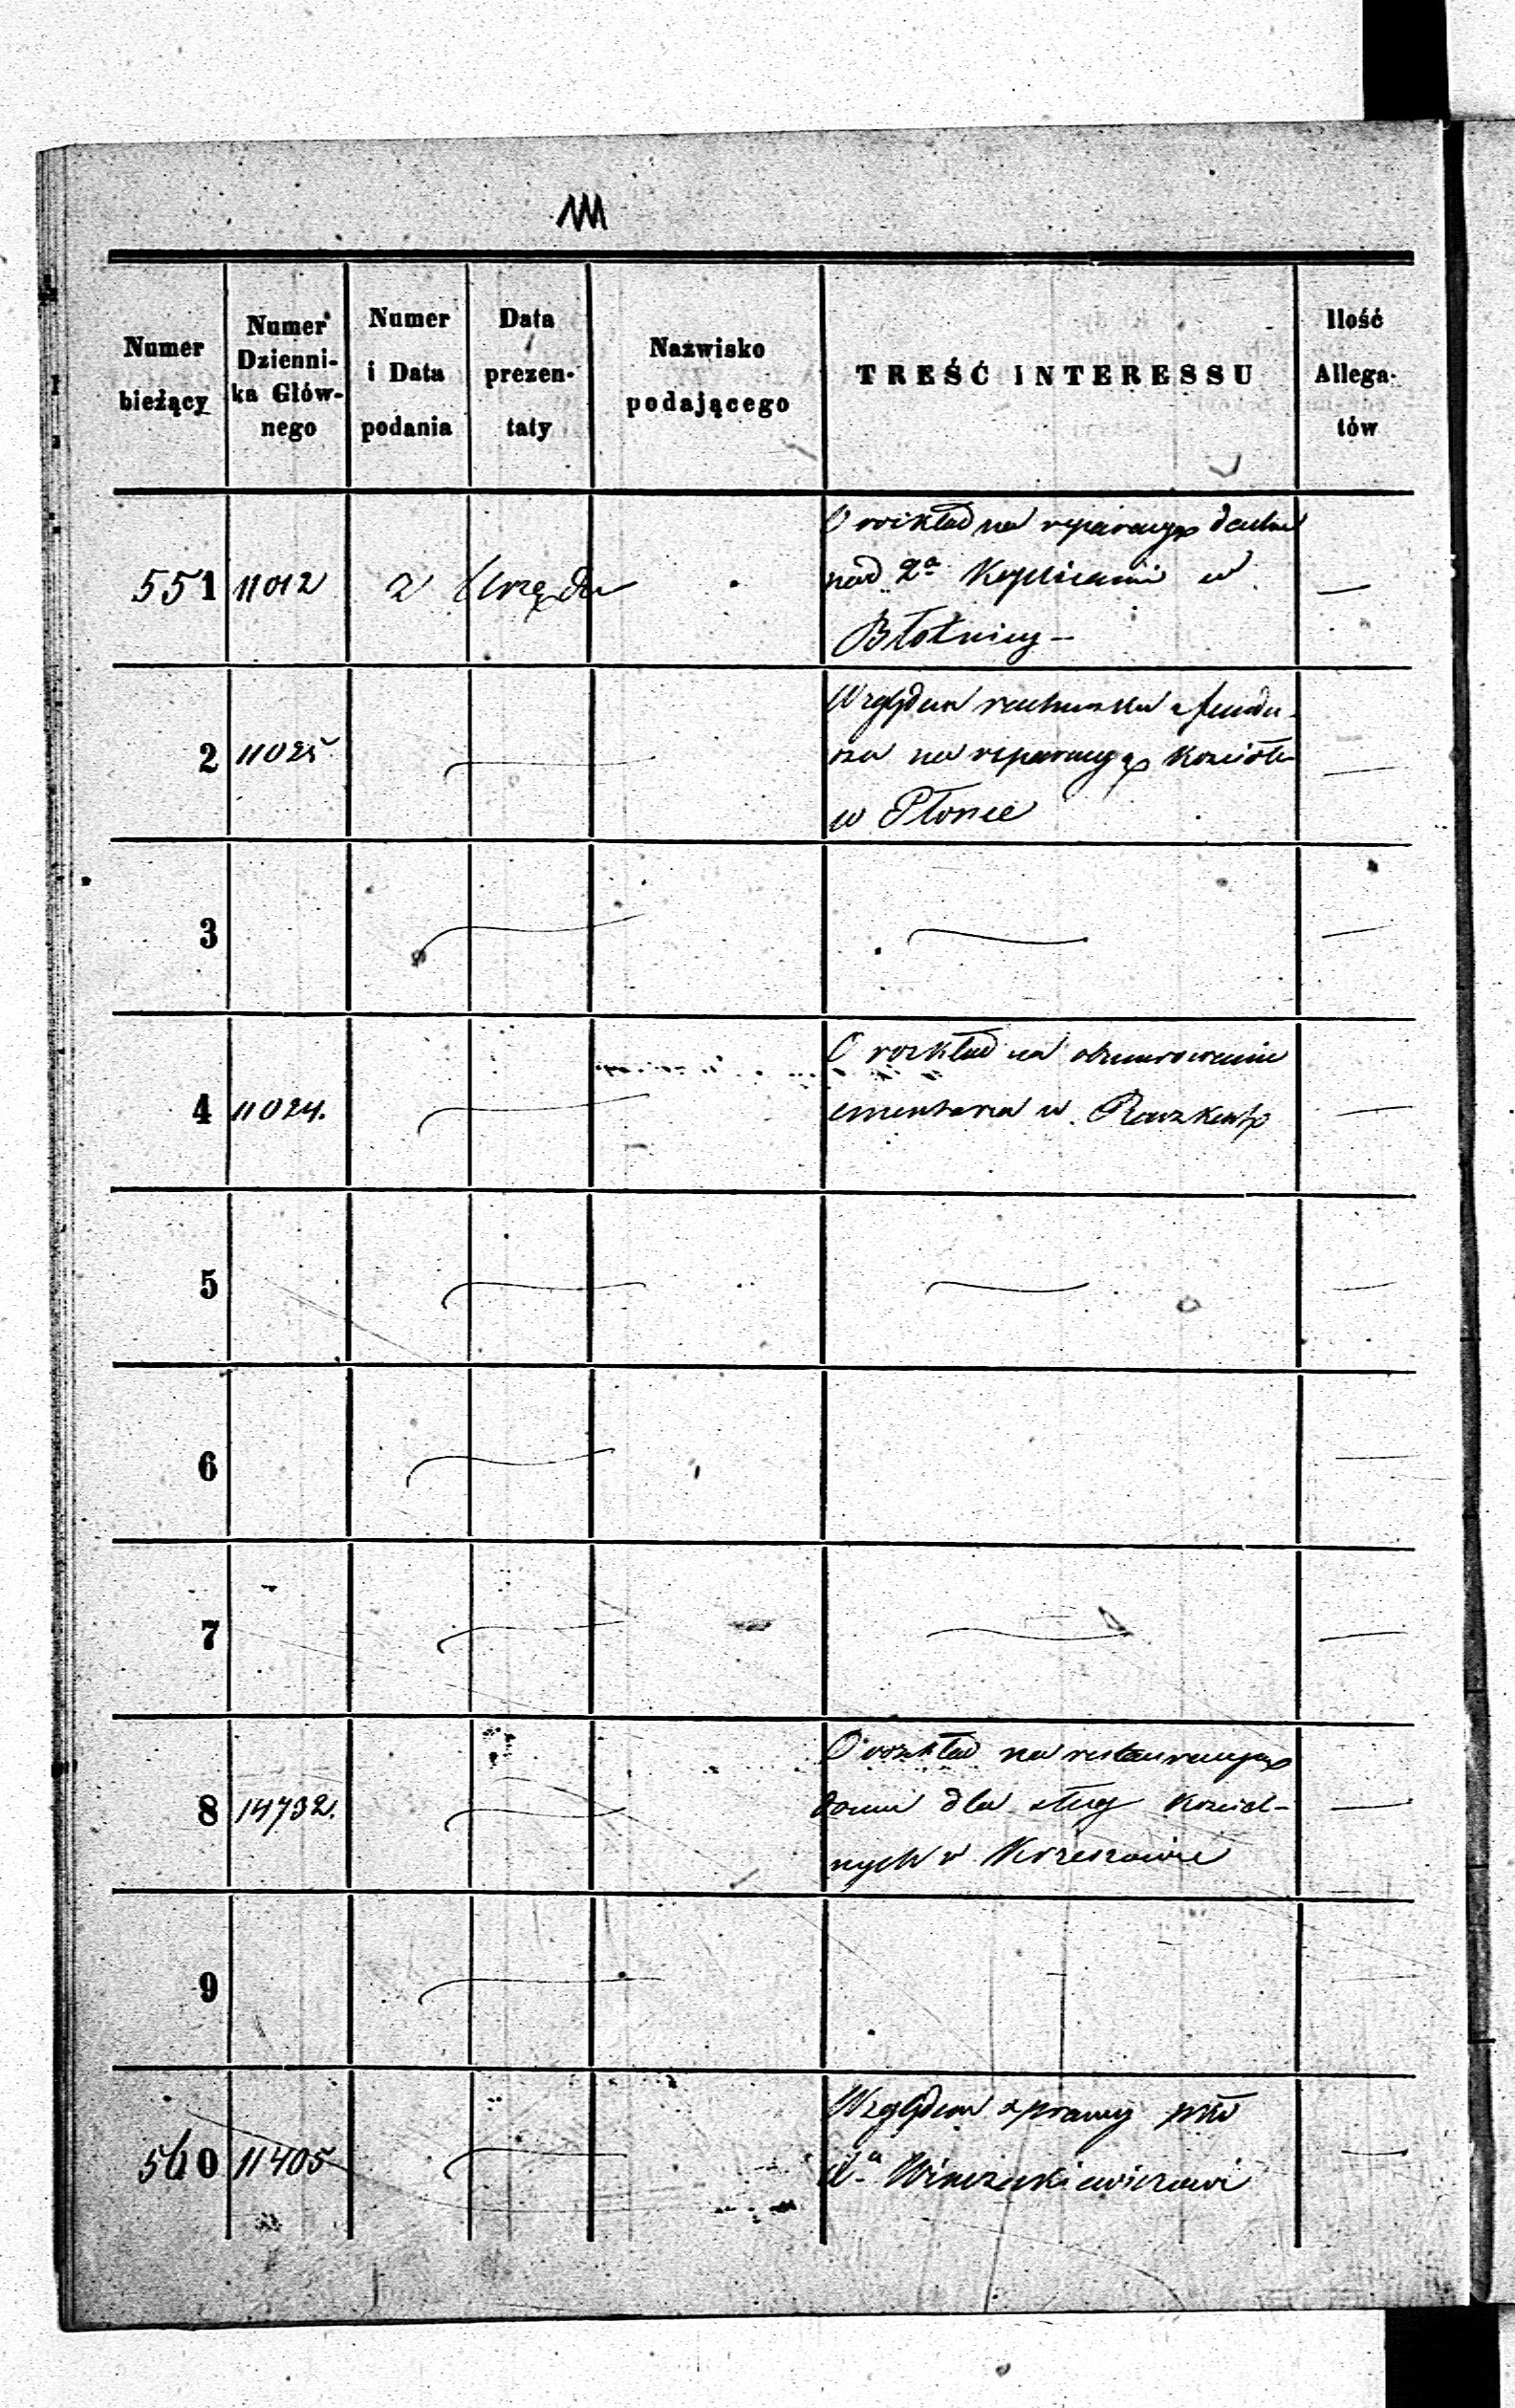 Numer bieżący
Numer Dzienni-
ka Głów-
nego
Numer i Data podania
Data prezen-
taty
Nazwisko podającego
TREŚĆ INTERESSU
Ilość Allega-
tów
551 11012 z Urzędu
O rozkład na reparacyą dachu
nad 2a Kaplicami w
Błotnicy —
2 11025
Względem rachunku z fundu-
szu na reparacyą Kościoła
w Płonce
3
4 11024.
O rozkład na obmurowanie
cmentarza w
5
6
7
8 14732.
O rozkład na restauracyą
domu dla sług Kościel-
nych w Krzeszowie
9
560 11405
Względem sprawy